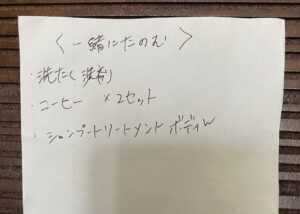 〈一緒にたのむ〉
・洗たく洗剤
・コーヒー ×2セット
・シャンプートリートメント ボディ